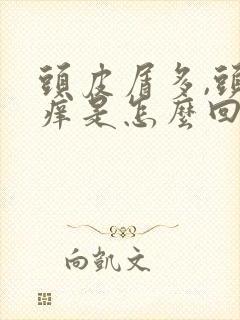 頭皮屑多,頭
癢是怎麼回
向凱文